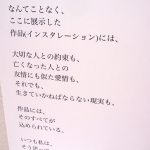 なんてことなく、
ここに展示した
作品(インスタレーション)には、
大切な人との約束も、
亡くなった人との
友情にも似た愛情も、
それでも、
生きていかねばならない現実も、
作品には、
そのすべてが
込められている。
いつも私は、